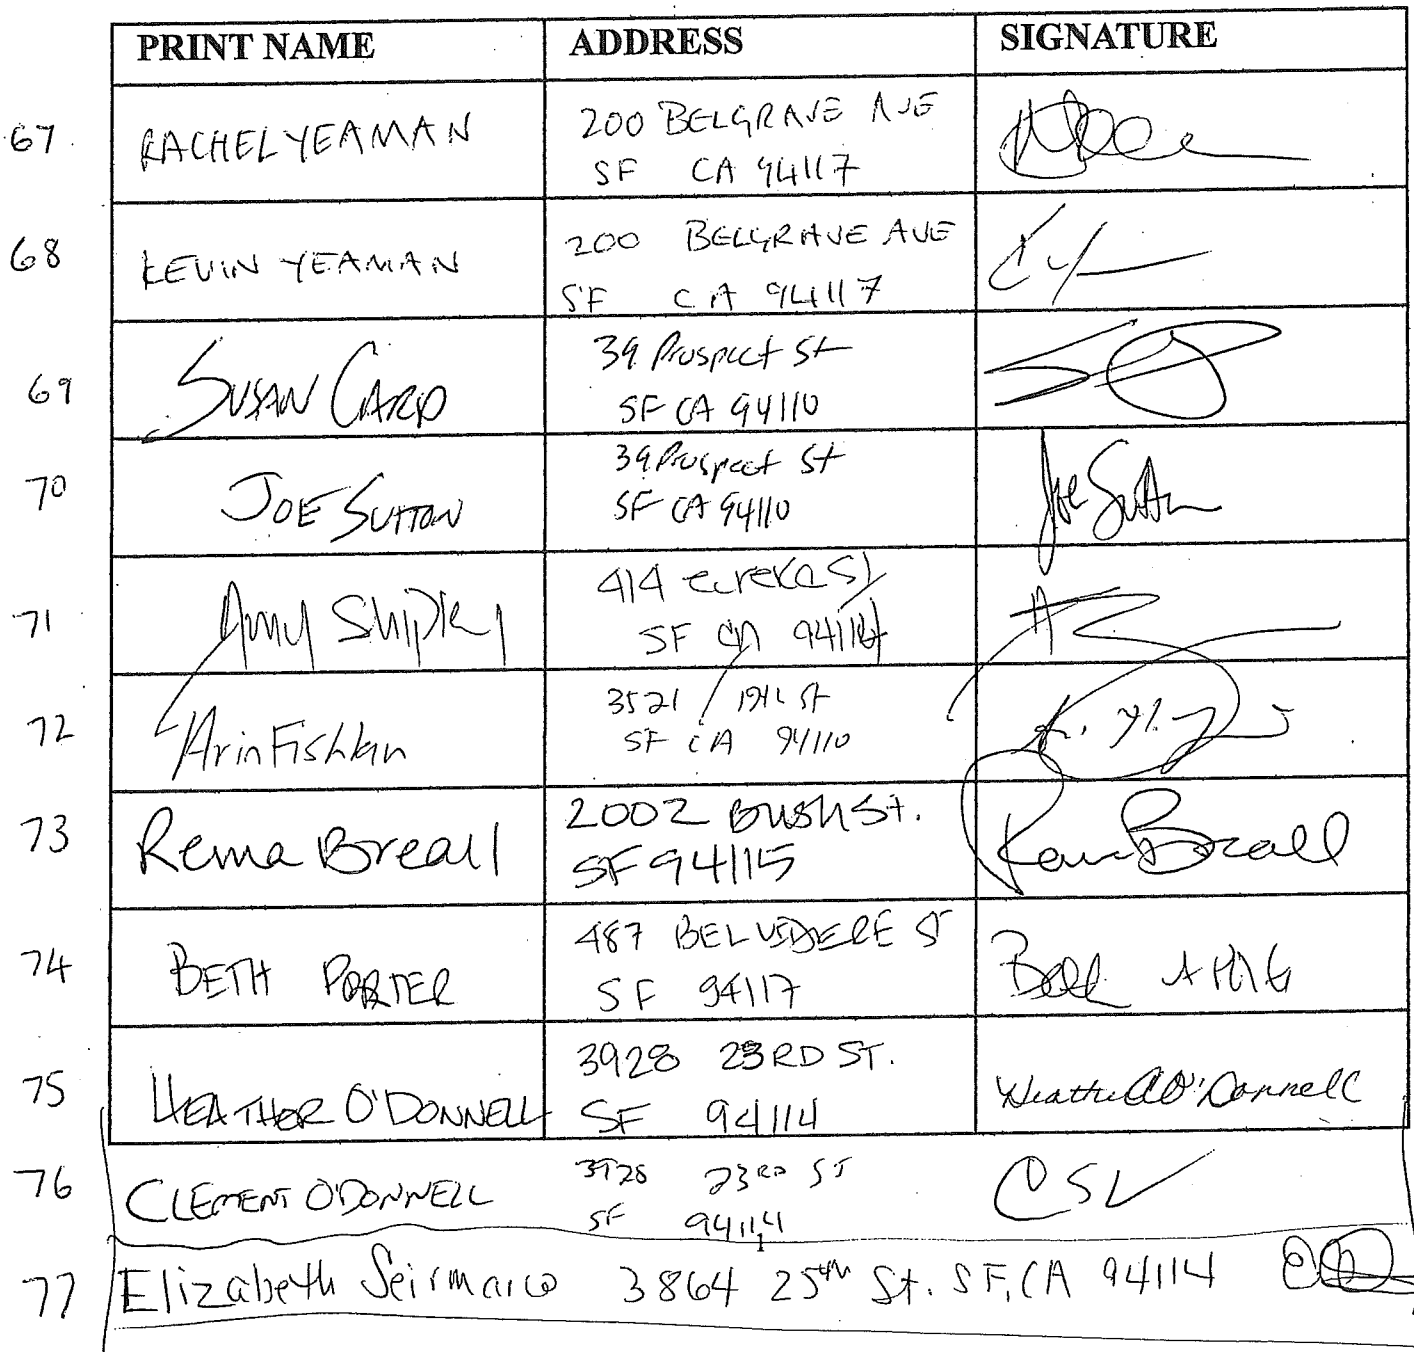 PRINT NAME ADDRESS SIGNATURE
67. RACHEL YEAMAN 200 BELGRAVE AVE
SF CA 94117
68 KEVIN YEAMAN 200 BELGRAVE AVE
SF CA 94117
69 SUSAN CARD 39 Prospect St
SF CA 94110
70 JOE SUTTON 39 Prospect St Joe Sutton
SF CA 94110
71 Amy Shipley 414 eureka St
SF CA 94114
72 Arin Fishkin 3521 19th St
SF CA 94110
73 Rema Breall 2002 Bush St. Breall
SF 94115
74 BETH PORTER 487 BELVEDERE ST Beth
SF 94117
75 HEATHER O'DONNELL 3928 23RD ST. Heather O'Donnell
SF 94114
76 CLEMENT O'DONNELL 3928 23RD ST
SF 94114
1
77 Elizabeth 3864 25th St. SF, CA 94114